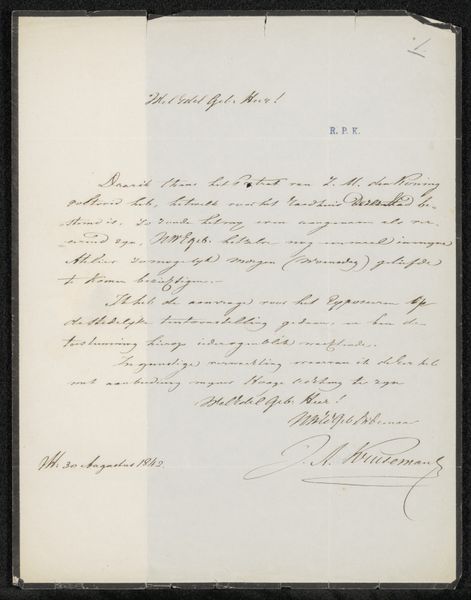 1.
Wel Edel Geb. Heer!
R. P. K.
Daar ik thans het Portret van Z. M. den Koning
voltooid heb, hetwelk voor het Raadhuis be-
stemd is, zo zoude het mij even aangenaam als ver-
eerend zijn, UWEgeb. hetzelve nog eenmaal in mijne
Atelier zo mogelijk morgen (Woensdag) geliefde
te komen bezigtigen.
Ik heb de aanvrage voor het Exposeeren op
de Stedelijke tentoonstelling gedaan en ben de
toestemming hierop ieder ogenblik wachtende.
In gunstige verwachting waarvan ik de Eer heb
met aanbieding mijner Hooge achting te zijn
WelEdelGeb. Heer!
UWEdGeb Dienaar
J. A. Kruseman
30 Augustus 1842.